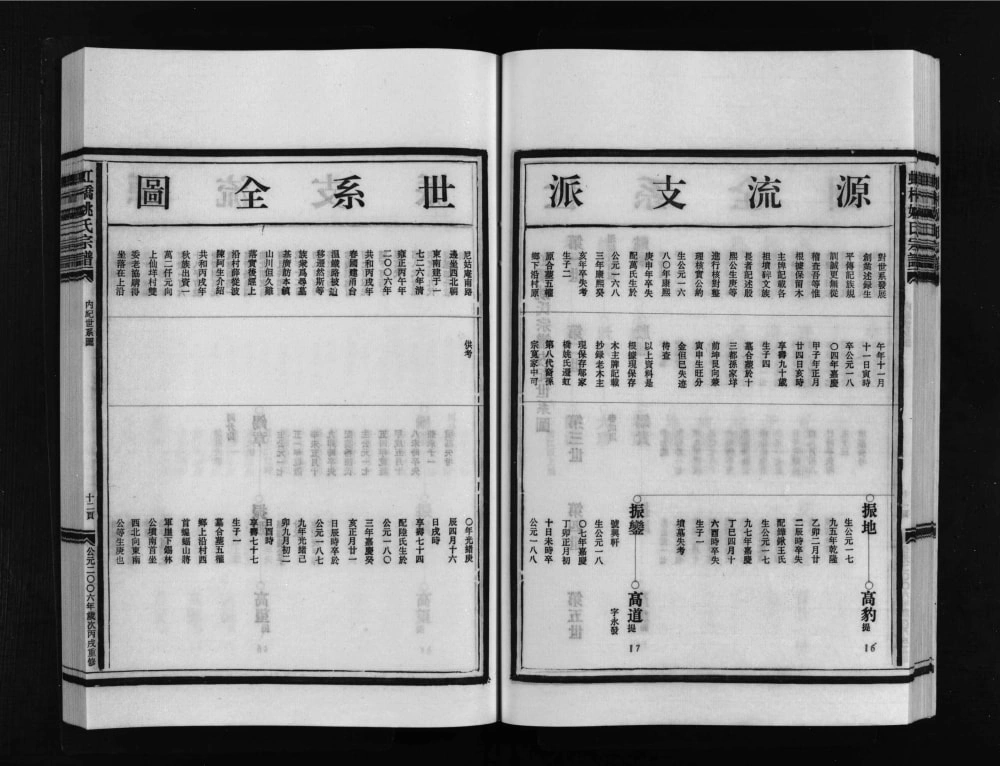 源流支派
對世系發展
創業述錄生
平傳記族規
訓誡更無從
稽查吾等惟
根據保留木
主牌記載各
祖墳碑文族
長者記述殷
熙公生庚等
進行核對整
理核實公約
生公元一六
八〇年康熙
庚申年卒失
配萬氏生於
公元一六八
三年康熙癸
亥年卒失考
生子二
原合葬五權
鄉下沿村原
午年十一月
十一日寅時
卒公元一八
〇四年嘉慶
甲子年正月
廿四日亥時
享壽九十歲
生子四
墓合葬於十
三都孫家垟
前坤艮向兼
寅申生旺分
金但已失迹
待查
以上資料是
根據現保存
木主牌記載
抄錄老木主
現保存鄔家
橋姚氏遷虹
第八代裔孫
宗寬家中可
振地
生公元一七
九五年乾隆
乙卯二月廿
二辰時卒失
配嬅鍬王氏
生公元一七
九七年嘉慶
丁巳四月十
六酉時卒失
生子一
墳墓失考
高豹 提16
振鑾
號興軒
生公元一八
〇七年嘉慶
丁卯正月初
十日未時卒
公元一八八
高道 提17
字永發
世系全圖
尼姑庵南路
邊坐西北朝
東南建于一
七二六年清
雍正丙午年
二〇〇六年
共和丙戌年
春國建甬台
溫鐵路被迫
移遷然斯等
族衆爲尋墓
基廣訪本鎮
山川但久難
落實後經上
沿村薛從波
陳阿生介紹
共和丙戌年
秋族出資一
萬二仟元向
上仙垟村雙
委老協購得
坐落在上沿
供考
〇年光緒庚
辰四月十六
日戌時
享壽七十四
配陸氏生於
公元一八〇
三年嘉慶癸
亥正月廿一
日辰時卒於
公元一八七
九年光緒己
卯九月初二
日酉時
享壽七十七
生子一
墓合葬五權
鄉上沿村西
首蝙蝠山將
軍崖下錫林
公墳南首坐
西北向東南
公等生庚也
虹橋姚氏宗譜
內紀世系圖
十二頁
公元二〇〇六年歲次丙戌重修